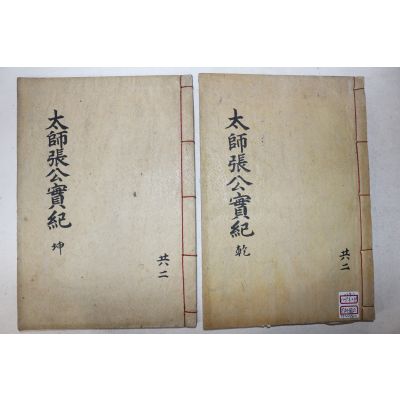 太師張公實紀
乾
共二
太師張公實紀
坤
共二